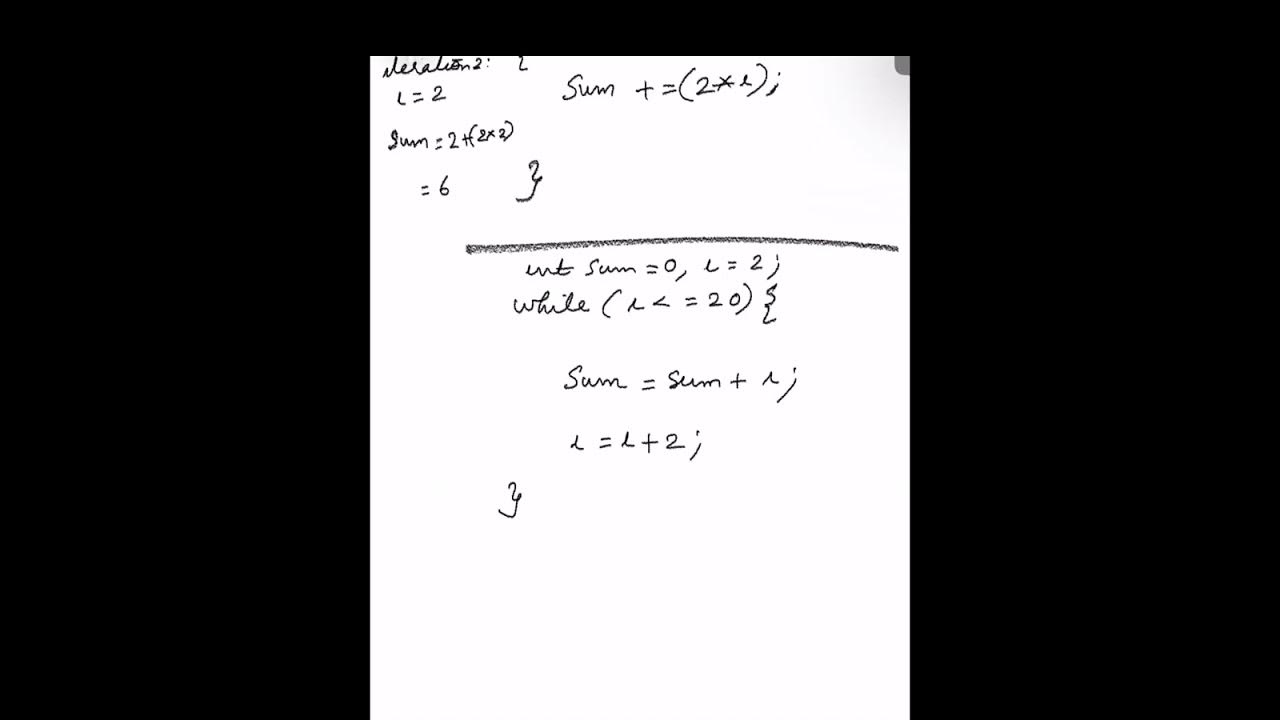 iteration 2: {
i = 2
Sum += (2*i);
Sum = 2+(2×2)
= 6
}
int sum = 0, i = 2;
while (i <= 20) {
Sum = sum + i;
i = i + 2;
}